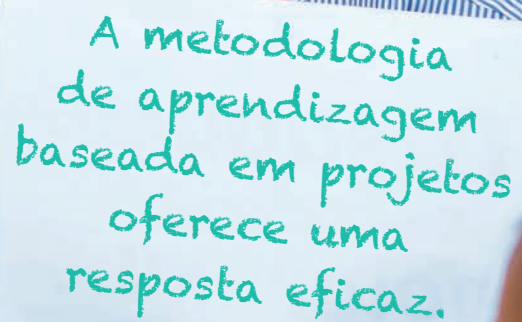 A metodologia
de aprendizagem
baseada em projetos
oferece uma
resposta eficaz.